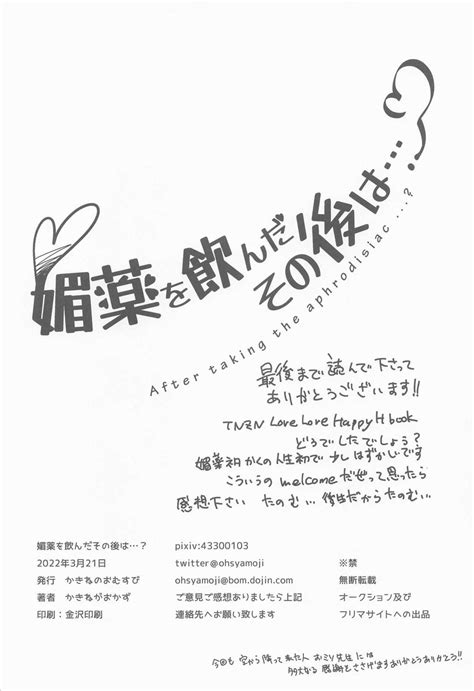 媚薬を飲んだその後は…?
After taking the aphrodisiac …?
最後まで読んで下さって
ありがとうございます!!
TNZN Love Love Happy H book
どうでしたでしょう?
媚薬ネタかくの人生初で少しはずかしいです
こういうの welcomeだぜって思ったら
感想下さい たのむ… 後生だからたのむ…
媚薬を飲んだその後は…? pixiv:43300103
2022年3月21日 twitter@ohsyamoji ※禁
発行 かきねのおむすび ohsyamoji@bom.dojin.com 無断転載
著者 かきねがおかず ご意見ご感想ありましたら上記 オークション及び
印刷:金沢印刷 連絡先へお願い致します フリマサイトへの出品
今回も空から降って来た人 おミソ先生には
多大なる感謝をささげますありがとうありがとう!!